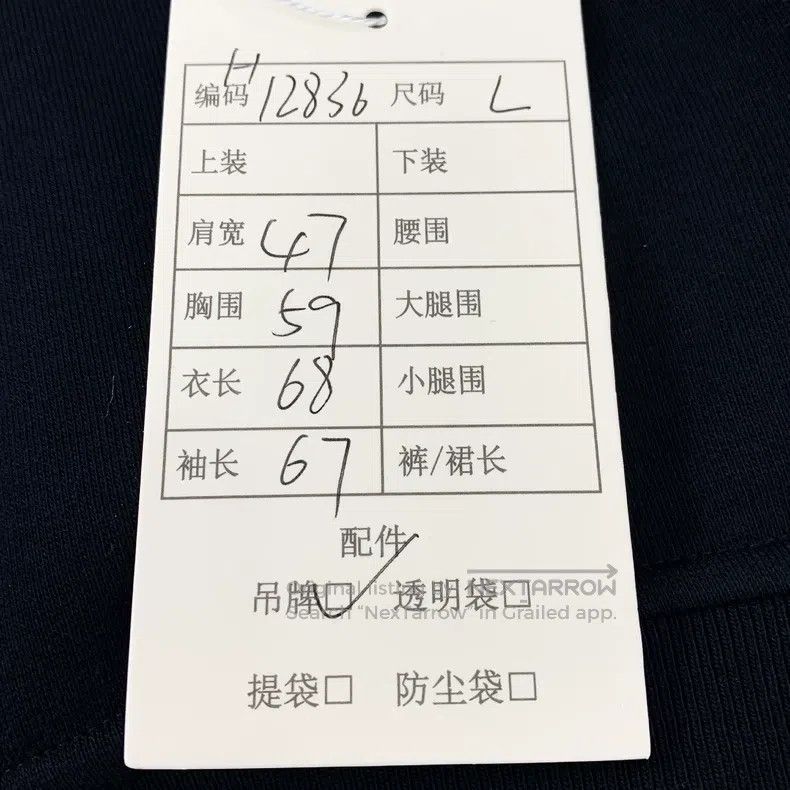 编码 H12836 尺码 L
上装 下装
肩宽 47 腰围
胸围 59 大腿围
衣长 68 小腿围
袖长 67 裤/裙长
配件
吊牌□ 透明袋□
Original listing by NEXTARROW
Search "NexTarrow" in Grailed app.
提袋□ 防尘袋□